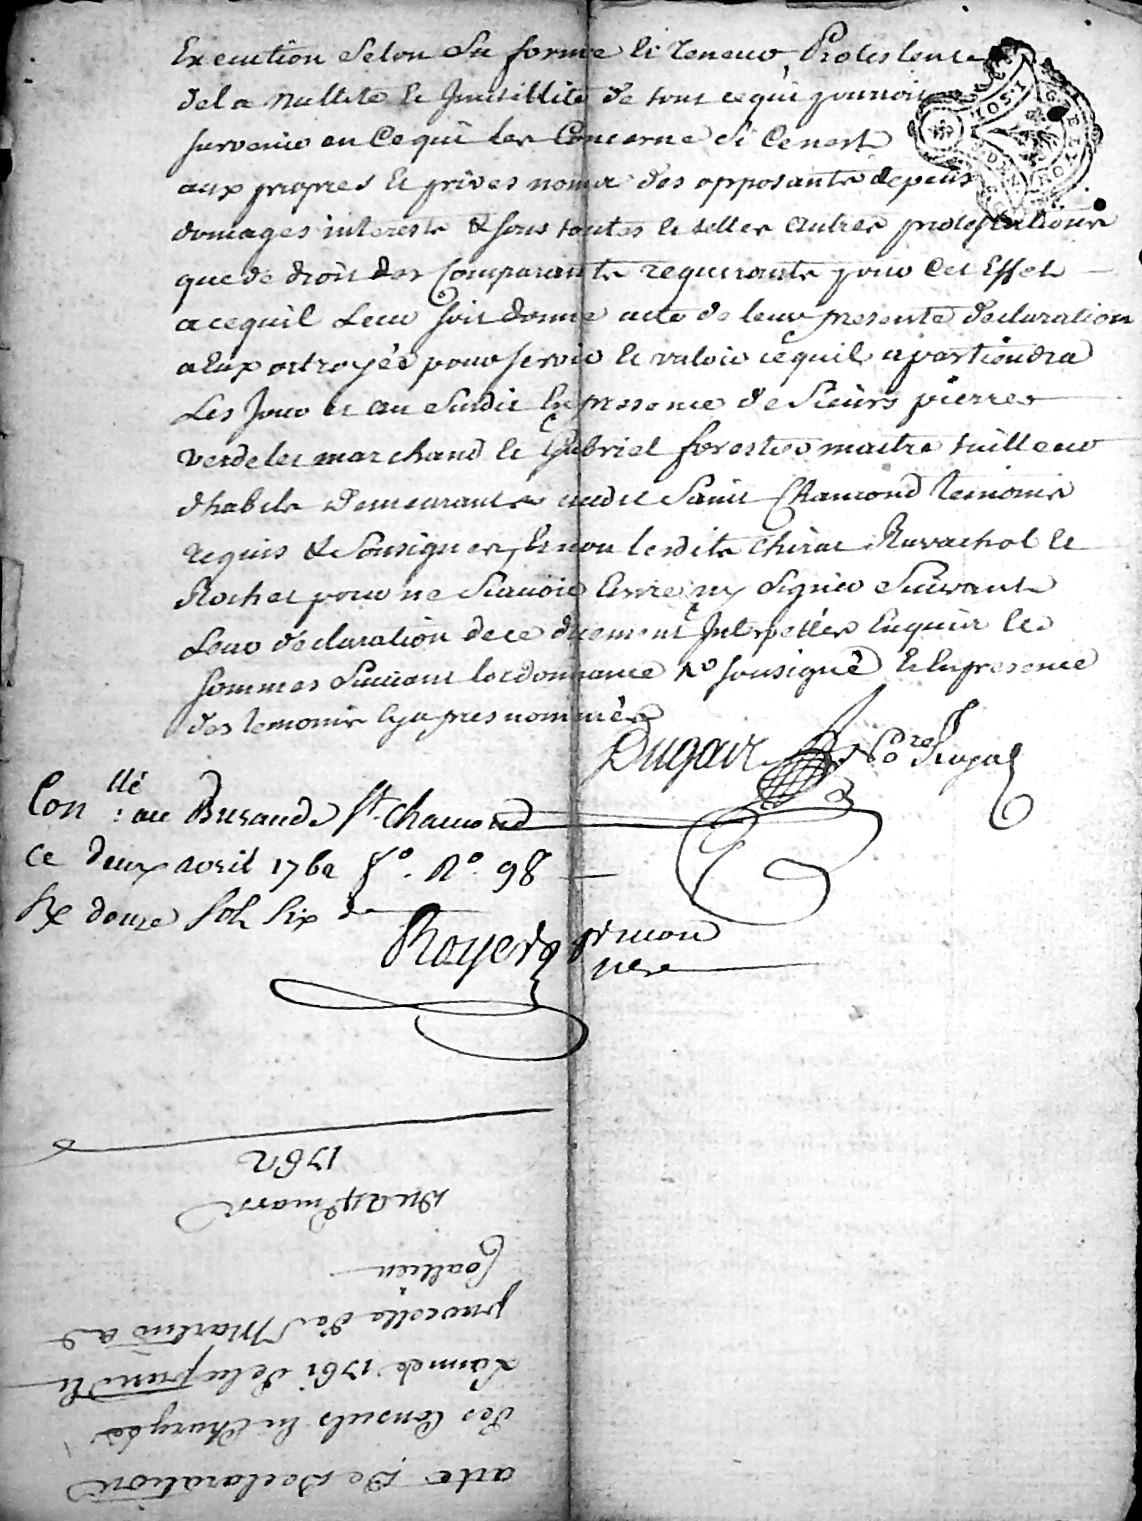 Execution Selon Sa forme & teneur, Protestent
dela Nullité & Jnutillité de tout cequi pourroit
survenir en Cequi les Concerne Si Cenest
aux propres & privés noms des opposants depens
domages interests & sous toutes & telles autres protestations
que de droit des Comparants requerants pour Cet Effet
acequil Leur soit donné acte de leur presente declaration
a Eux octroyée pour servir & valoir cequil apartiendra
Les Jour et an Susdit En presence de Sieurs pierre
verdelet marchand & Gabriel forestier maitre tailleur
dhabits Demeurants audit Saint Chamond temoins
requis & Sousignés, Et non lesdits Chirat Ravachol &
Rochet pour ne Scavoir Ecrire ny Signer Suivant
Leur declaration dece duement Jnterpellés Enquis &
Sommes Suivant lordonnance Nre sousigné & Enpresence
des temoins Cyapres nommés
Dugair Nore Royal
Conllé : au Bureaude St. Chamond
ce deux avril 1762 fo. No. 98
Rx douze sols six d
Royer
acte De Declaration
des Consuls En Charge de
Lannée 1761 de la
parcelle de St Martin a
Coallieu
Du 24e mars
1762